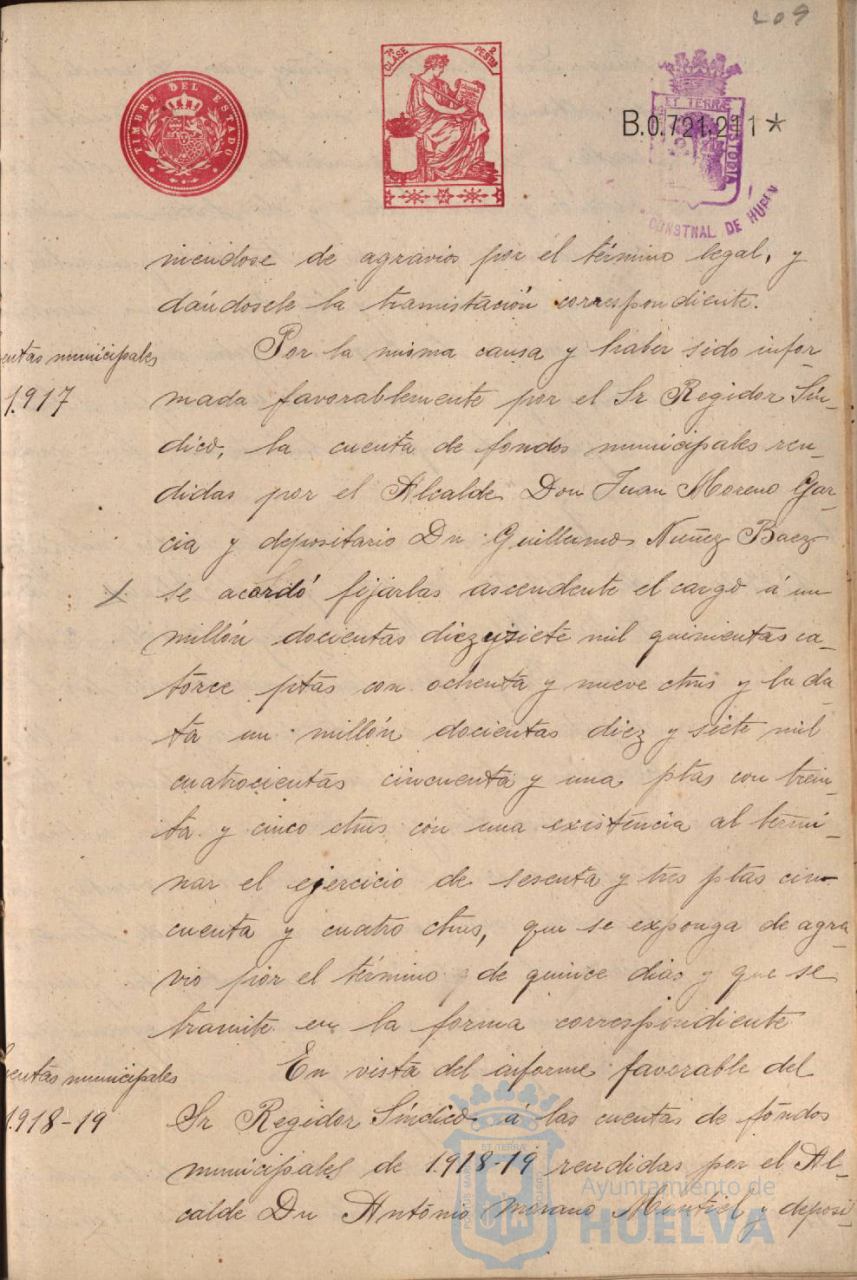 209
TIMBRE DEL ESTADO
7ª CLASE 2 PESTAS
ET TERRÆ CUSTODIA
B.0.721.211*
CONSTNAL DE HUELV
niendose de agravios por el término legal, y
dándosele la tramistación correspondiente.
entas municipales
1.917
Por la misma causa y haber sido infor-
mada favorablemente por el Sr Regidor Sín-
dico, la cuenta de fondos municipales ren-
didas por el Alcalde Don Juan Moreno Gar-
cia y depositario Dn Guillermo Nuñez Baez
se acordó fijarlas ascendente el cargo á un
millón docientas diezysiete mil quinientas ca-
torce ptas con ochenta y nueve ctms y la da-
ta un millón docientas diez y siete mil
cuatrocientas cincuenta y una ptas con trein-
ta y cinco ctms con una existencia al termi-
nar el ejercicio de sesenta y tres ptas cin-
cuenta y cuatro ctms, que se exponga de agra-
vio por el término de quince dias y que se
tramite en la forma correspondiente
entas municipales
1.918-19
En vista del informe favorable del
Sr Regidor Síndico á las cuentas de fondos
municipales de 1.918-19 rendidas por el Al-
calde Dn Antonio Morano Montiel y deposi-
ET TERRÆ
Ayuntamiento de
HUELVA